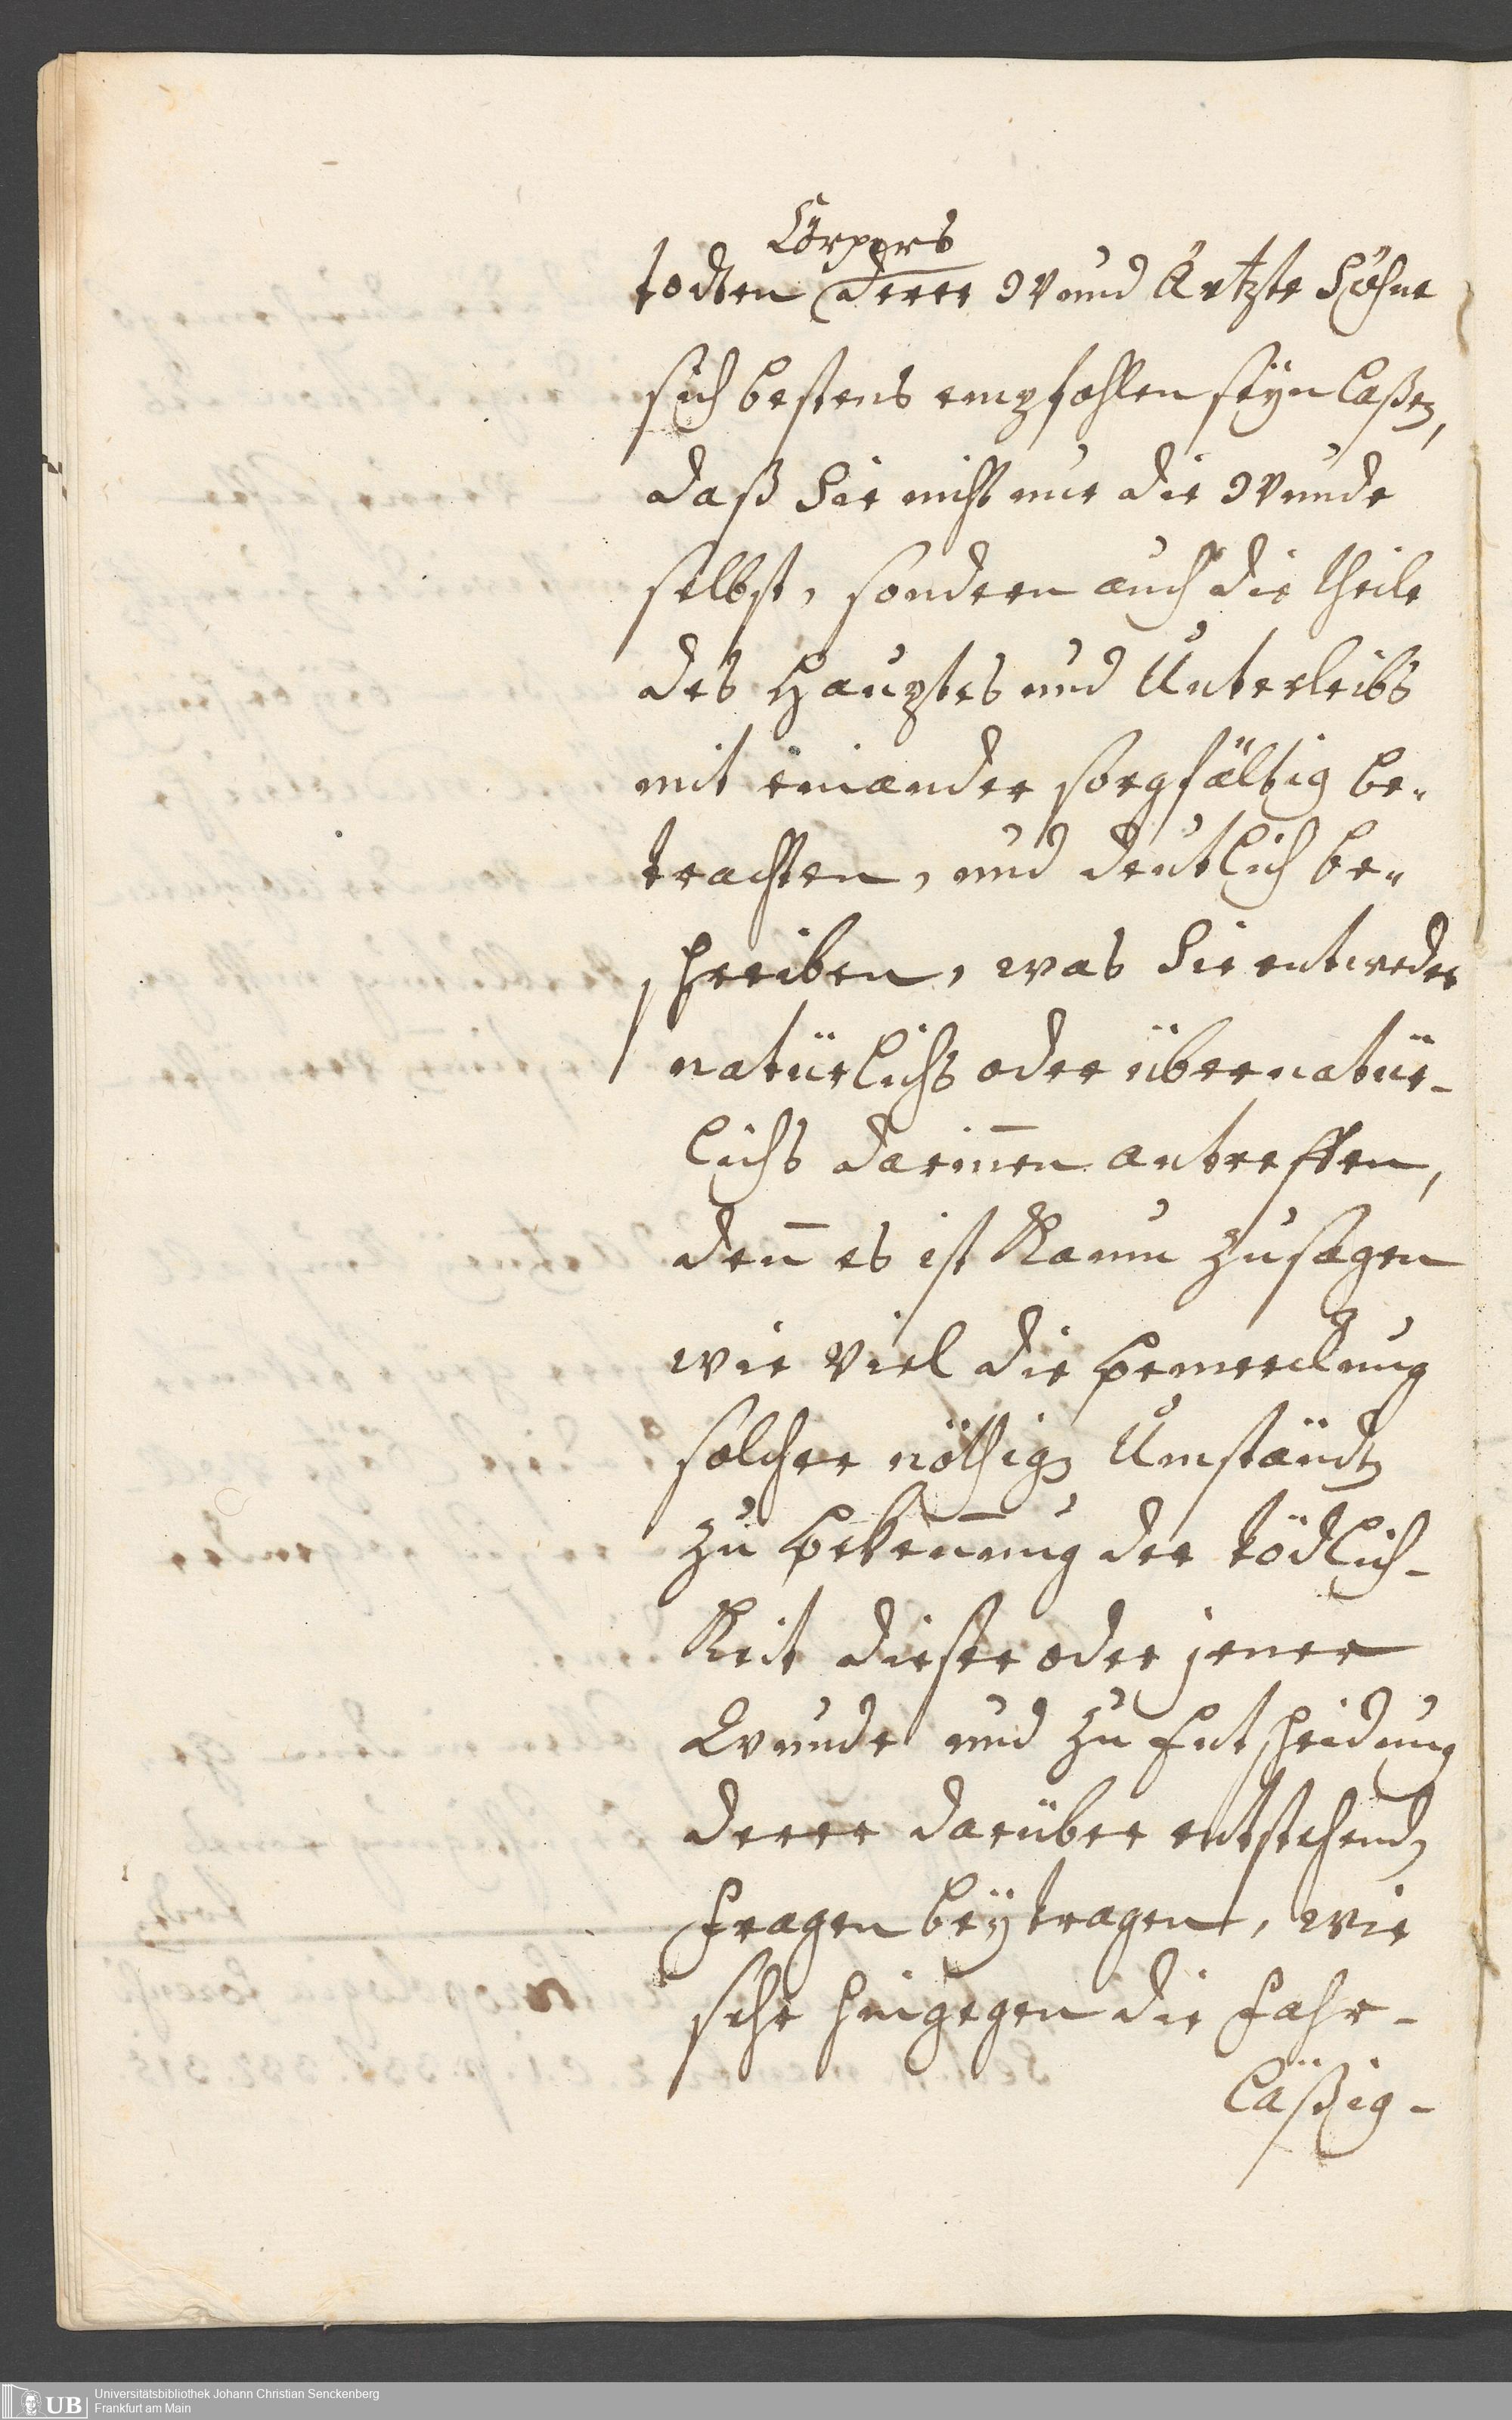 Cörpers
todten derer Wund Ärtzte Söhne
sich bestens empfohlen seyn laßen,
daß Sie nicht nur die Wunde
selbst, sondern auch die theile
des Hauptes und Unterleibs
mit einander sorgfältig be-
trachten, und deutlich be-
schreiben, was Sie entweder
natürlichs oder übernatür-
lichs darinnen antreffen,
denn es ist Kaum zu sagen
wie viel die Bemerckung
solcher nöthigen Umständen
zu Erkennung der tödlich-
Keit dieser oder jener
Wunde und zu Entscheidung
derer darüber entstehenden
Fragen beytragen, wie
sehr hingegen die Fahr-
läßig-
Universitätsbibliothek Johann Christian Senckenberg
Frankfurt am Main
UB